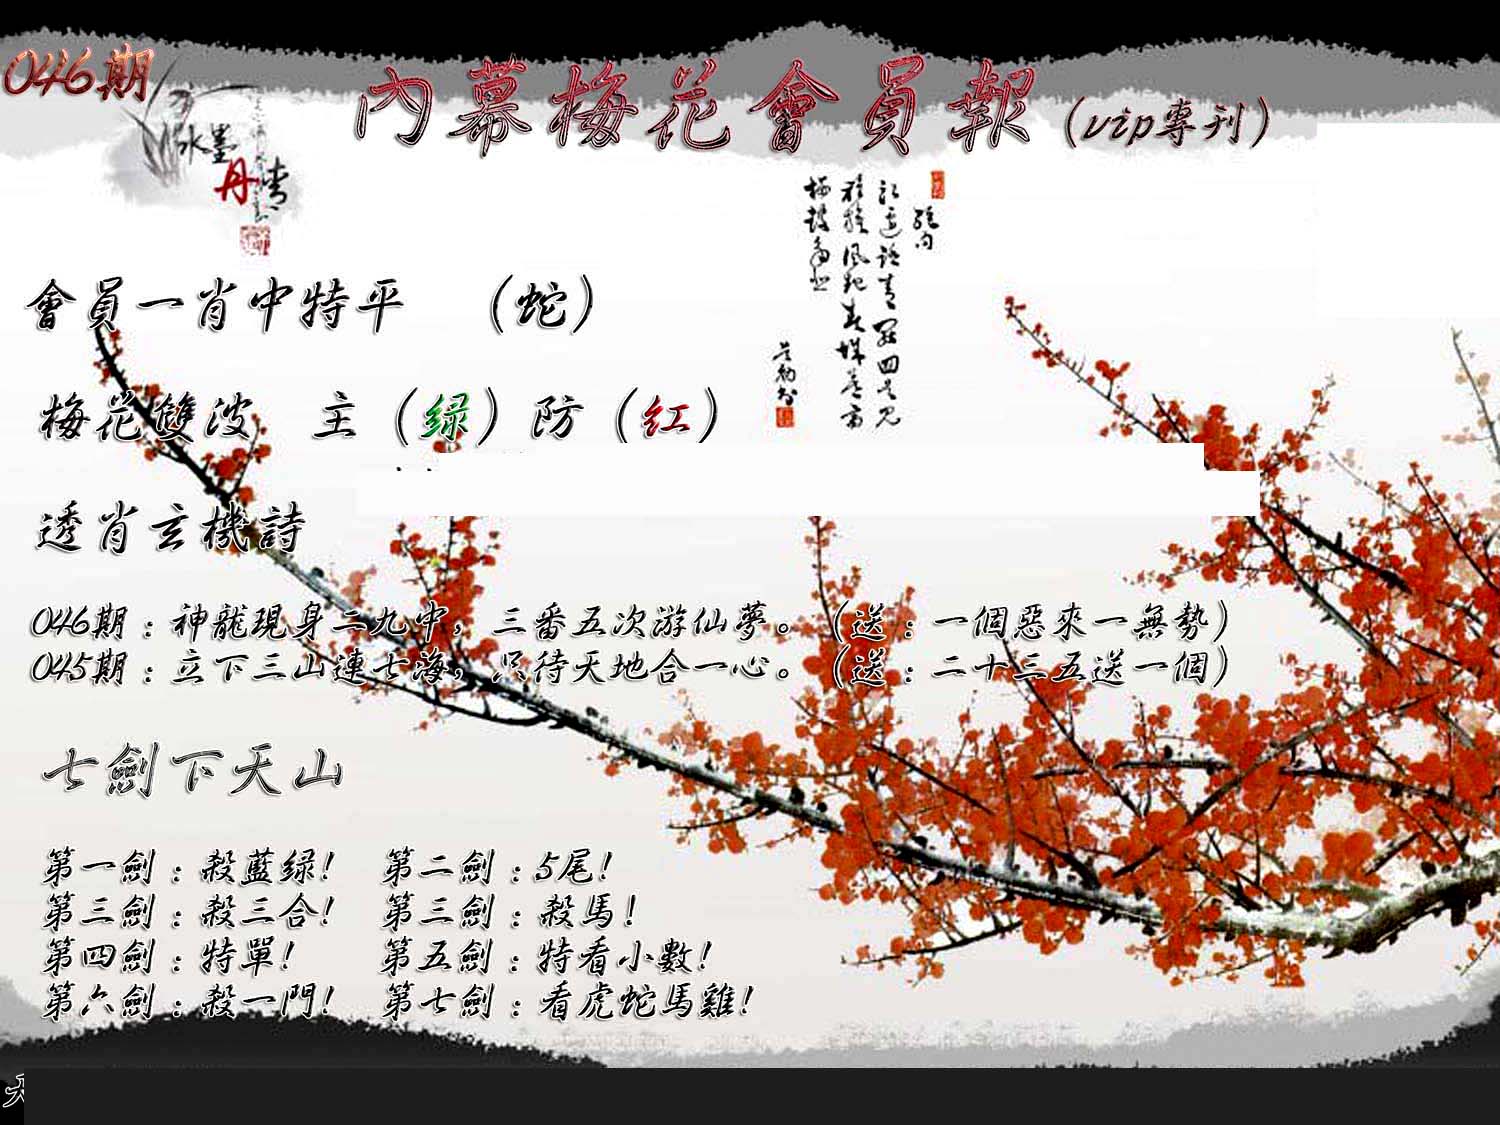 046期
內幕梅花會員報(vip專刊)
水墨
丹青
會員一肖中特平 (蛇)
梅花雙波 主(绿)防(红)
透肖玄機詩
046期:神龍現身二九中,三番五次游仙夢。(送:一個惡來一無勢)
045期:立下三山連七海,只待天地合一心。(送:二十三五送一個)
七劍下天山
第一劍:殺藍绿! 第二劍:5尾!
第三劍:殺三合! 第三劍:殺馬!
第四劍:特單! 第五劍:特看小數!
第六劍:殺一門! 第七劍:看虎蛇馬雞!